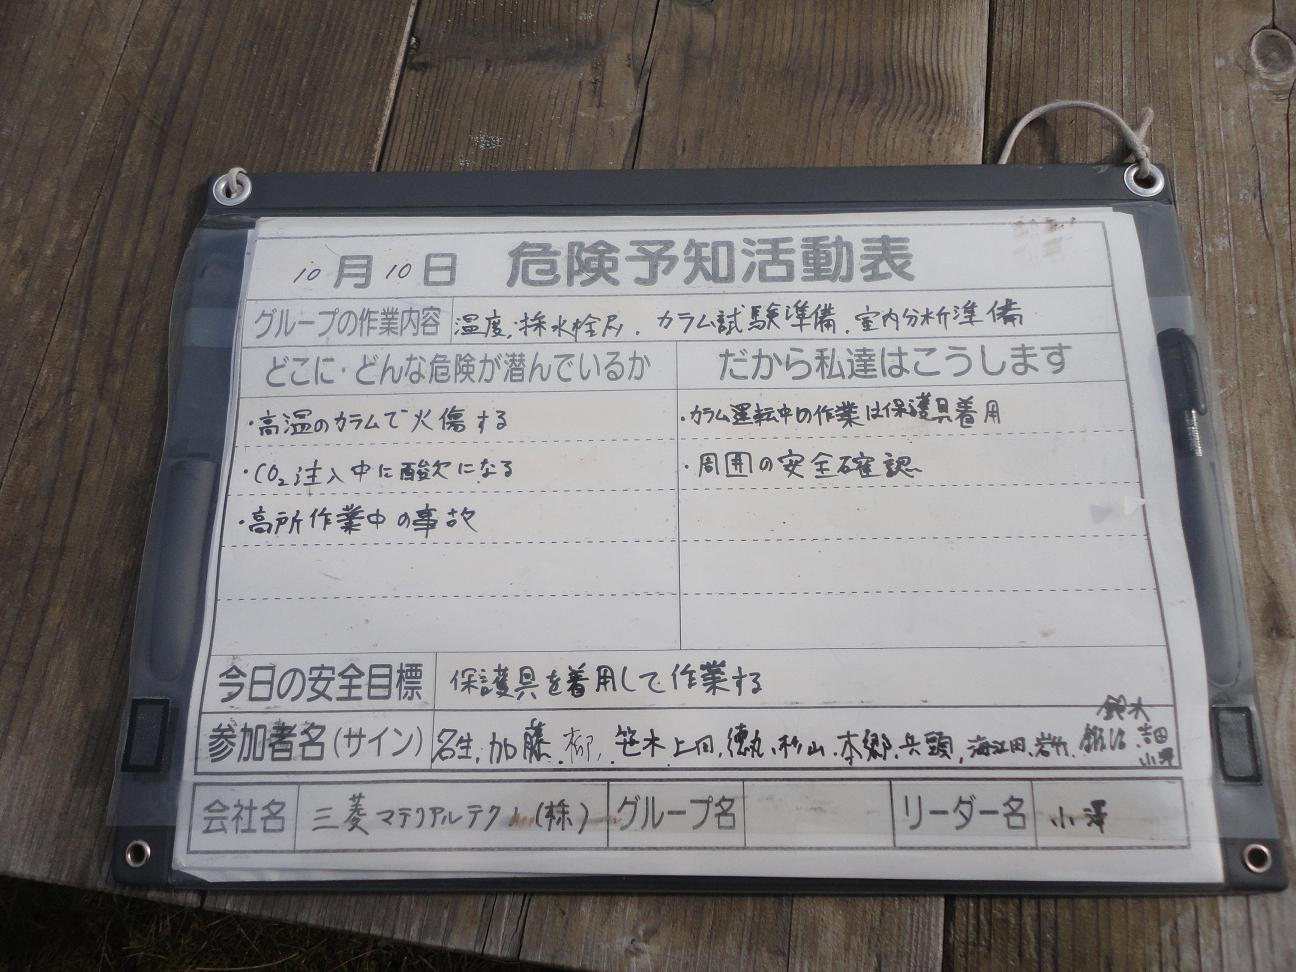 10月10日 危険予知活動表
グループの作業内容 温度、採水 、カラム試験準備、室内分析準備
どこに・どんな危険が潜んでいるか だから私達はこうします
・高温のカラムで火傷する ・カラム運転中の作業は保護具着用
・CO₂注入中に酸欠になる ・周囲の安全確認
・高所作業中の事故
今日の安全目標 保護具を着用して作業する
鈴木
参加者名(サイン) 名生、加藤、柳、笹木、上田、徳丸、杉山、本郷、兵頭、海江田、 吉田
小澤
会社名 三菱マテリアルテクノ(株) グループ名 リーダー名 小澤